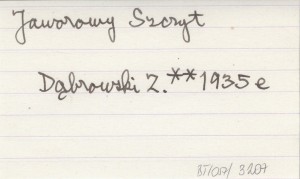 Jaworowy Szczyt
Dąbrowski Z. **1935 e
BT/017/ 3207